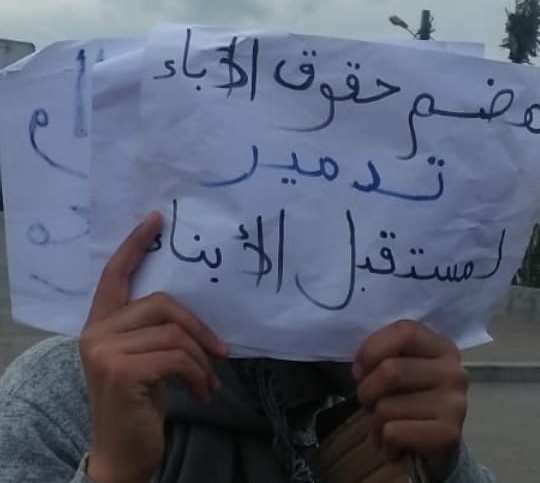 هضم حقوق الأباء
تدمير
لمستقبل الأبناء